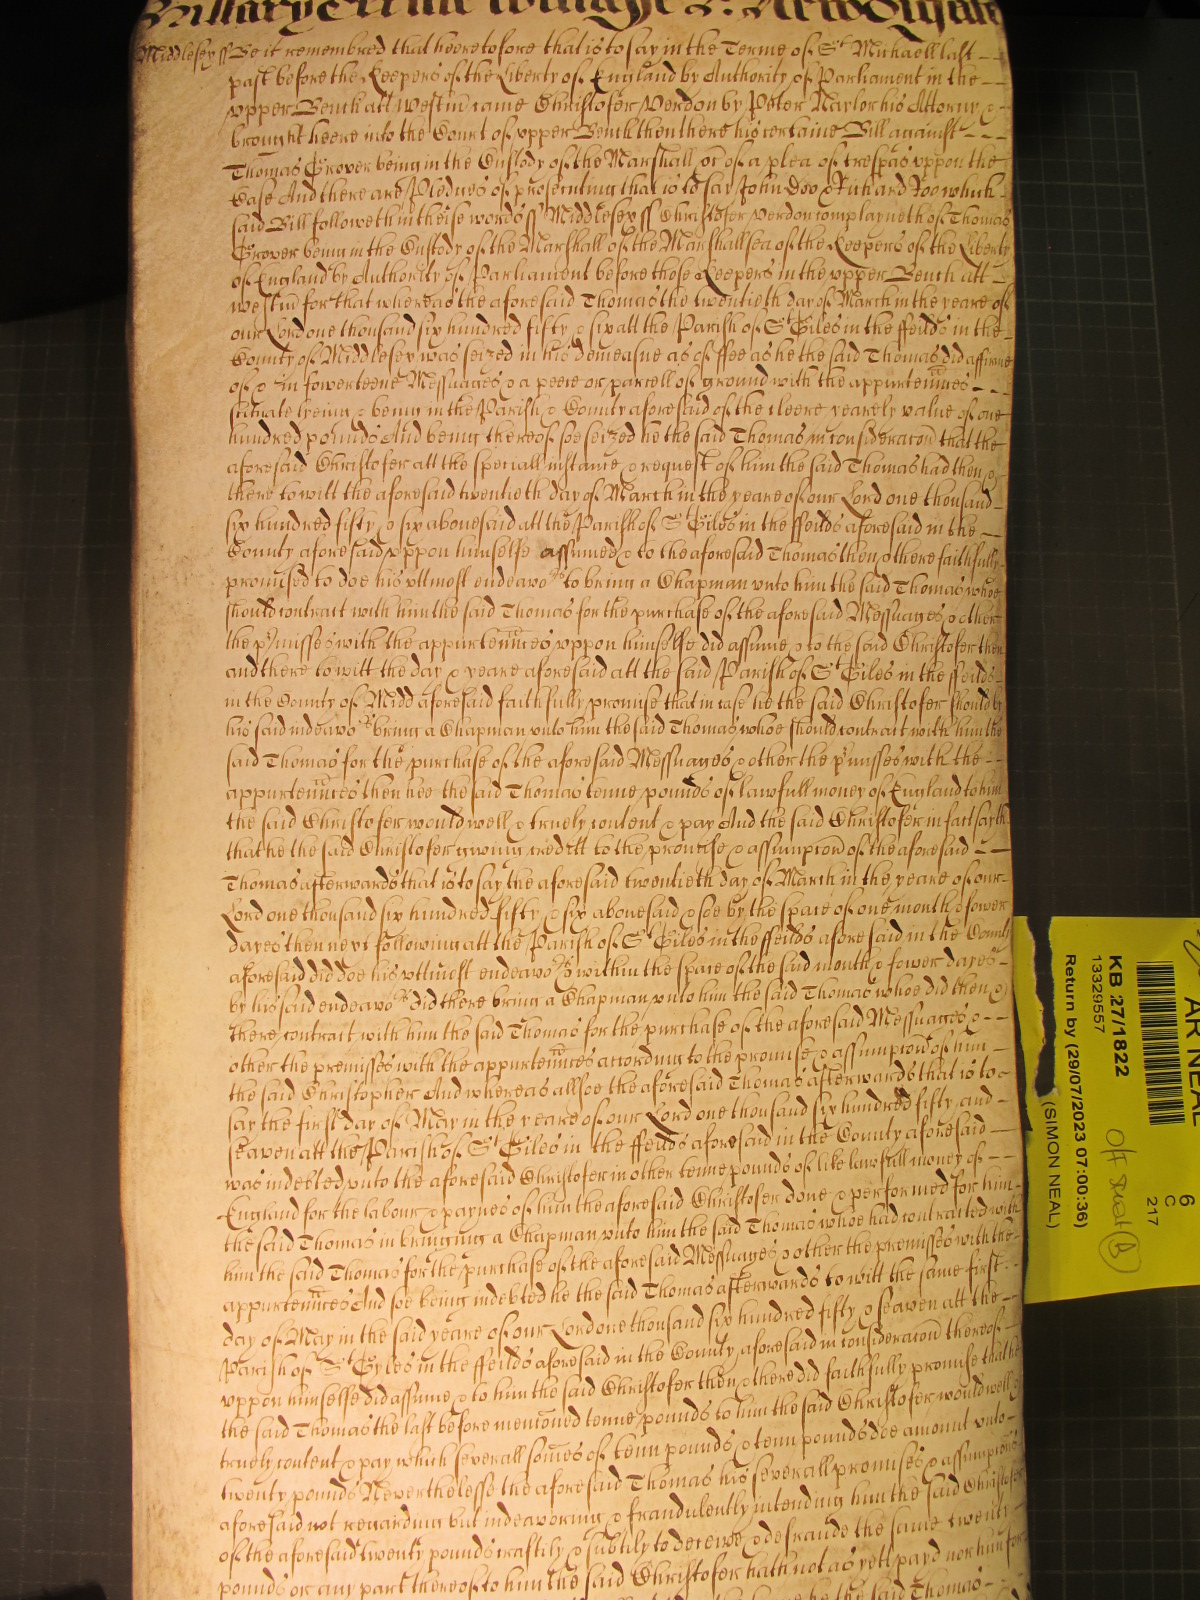 Hillary Terme
Middlesex ss Be it remembred that heeretofore that is to say in the Terme of St Michaell last
past before the Keepers of the Liberty of England by Authority of Parliament in the
vpper Bench att Westm came Christofer Verdon by Peter Naylor his Attorny &
brought heere into the Court of vpper Bench then there his certaine Bill against
Thomas Grover being in the Custody of the Marshall &c of a plea of trespas vppon the
Case And there are Pledges of prosecuting that is to say John Doo & Richard Roo which
said Bill followeth in theise words ss Middlesex ss Christofer Verdon complayneth of Thomas
Grover being in the Custody of the Marshall of the Marshallsea of the Keepers of the Liberty
of England by Authority of Parliament before those Keepers in the vpper Bench att
Westm for that whereas the aforesaid Thomas the twentieth day of March in the yeare of
our Lord one thousand six hundred fifty & six att the Parish of St Giles in the ffeilds in the
County of Middlesex was seized in his demeasne as of ffee as he the said Thomas did affirme
of & in fowerteene Messuages & a peece or parcell of ground with the appurtennces
scituate lyeing & being in the Parish & County aforesaid of the cleere yearely value of one
hundred pounds And being thereof soe seized he the said Thomas in consideracon that the
aforesaid Christofer att the speciall instance & request of him the said Thomas had then &
there to witt the aforesaid twentieth day of March in the yeare of our Lord one thousand
six hundred fifty & six abovesaid att the Parish of St Giles in the ffeilds aforesaid in the
County aforesaid vppon himselfe assumed & to the aforesaid Thomas then & there faithfully
promised to doe his vttmost endeavors to bring a Chapman vnto him the said Thomas whoe
should contract with him the said Thomas for the purchase of the aforesaid Messuages & other
the p'misses with the appurtennces vppon himselfe did assume & to the said Christofer then
and there to witt the day & yeare aforesaid att the said Parish of St Giles in the ffeilds
in the County of Midd aforesaid faithfully promise that in case he the said Christofer should by
his said indeavors bring a Chapman vnto him the said Thomas whoe should contract with him the
said Thomas for the purchase of the aforesaid Messuages & other the p'misses with the
appurtennces then hee the said Thomas tenne pounds of lawfull money of England to him
the said Christofer would well & truely content & pay And the said Christofer in fact sayth
that he the said Christofer giving creditt to the promise & assumpcon of the aforesaid
Thomas afterwards that is to say the aforesaid twentieth day of March in the yeare of our
Lord one thousand six hundred fifty & six abovesaid & soe by the space of one month & fower
dayes then next following att the Parish of St Giles in the ffeilds aforesaid in the County
aforesaid did doe his vttmost endeavors & within the space of the said month & fower dayes
by his said endeavors did there bring a Chapman vnto him the said Thomas whoe did then &
there contract with him the said Thomas for the purchase of the aforesaid Messuages &
other the premisses with the appurtennces according to the promise & assumpcon of him
the said Christopher And whereas allsoe the aforesaid Thomas afterwards that is to
say the first day of May in the yeare of our Lord one thousand six hundred fifty and
seaven att the Parish of St Giles in the ffeilds aforesaid in the County aforesaid
was indebted vnto the aforesaid Christofer in other tenne pounds of like lawfull money of
England for the labour & paynes of him the aforesaid Christofer done & performed for him
the said Thomas in bringing a Chapman vnto him the said Thomas whoe had contracted with
him the said Thomas for the purchase of the aforesaid Messuages & other the premisses with the
appurtennces And soe being indebted he the said Thomas afterwards to witt the same first
day of May in the said yeare of our Lord one thousand six hundred fifty & seaven att the
Parish of St Gyles in the ffeilds aforesaid in the County aforesaid in consideracon thereof
vppon himselfe did assume & to him the said Christofer then & there did faithfully promise that he
the said Thomas the last before mentioned tenne pounds to him the said Christofer would well &
truely content & pay which severall somes of tenn pounds & tenn pounds doe amount vnto
twenty pounds Neverthelesse the aforesaid Thomas his severall promises & assumpcons
aforesaid not regarding but indeavoring & fraudulently intending him the said Christofer
of the aforesaid twenty pounds craftily & subtily to deceive & defraude the same twenty
pounds or any part thereof to him the said Christofer hath not as yett payd nor him for
the said Thomas
AR NEAL
KB 27/1822
13329557
Return by (29/07/2023 07:00:36)
(SIMON NEAL)
6
C
217
Off sweet B